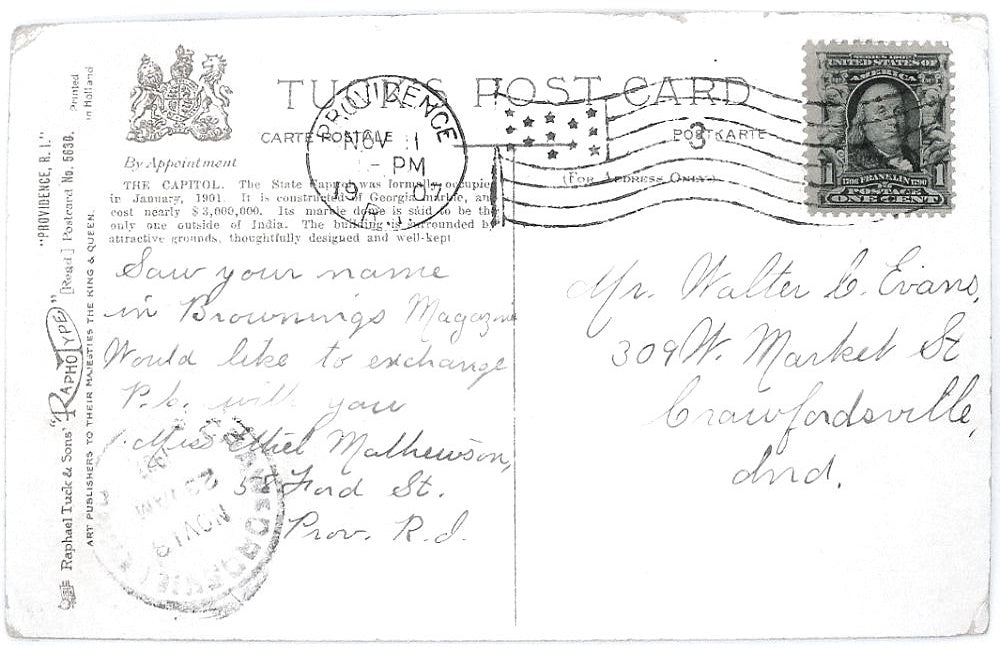 TUCK'S POST CARD
CARTE POSTALE
POSTKARTE
(FOR ADDRESS ONLY.)
By Appointment
THE CAPITOL. The State Capitol was formally occupied
in January, 1901. It is constructed of Georgia marble, and
cost nearly $3,000,000. Its marble dome is said to be the
only one outside of India. The building is surrounded by
attractive grounds, thoughtfully designed and well-kept
PROVIDENCE
NOV 11
PM
1907
R.I.
3
SERIES 1902
UNITED STATES OF
AMERICA
1 1706 FRANKLIN 1790 1
POSTAGE
ONE CENT
Saw your name
in Brownings Magazine
Would like to exchange
P.C. with you
Miss Ethel Mathewson,
58 Ford St.
Prov. R.I.
Mr. Walter C. Evans,
309 W. Market St
Crawfordsville,
Ind.
CRAWFORDSVILLE
NOV 13
AM
Printed
in Holland
"PROVIDENCE, R. I."
Raphael Tuck & Sons' "RAPHOTYPE" [Regd.] Postcard No. 5636.
ART PUBLISHERS TO THEIR MAJESTIES THE KING & QUEEN.